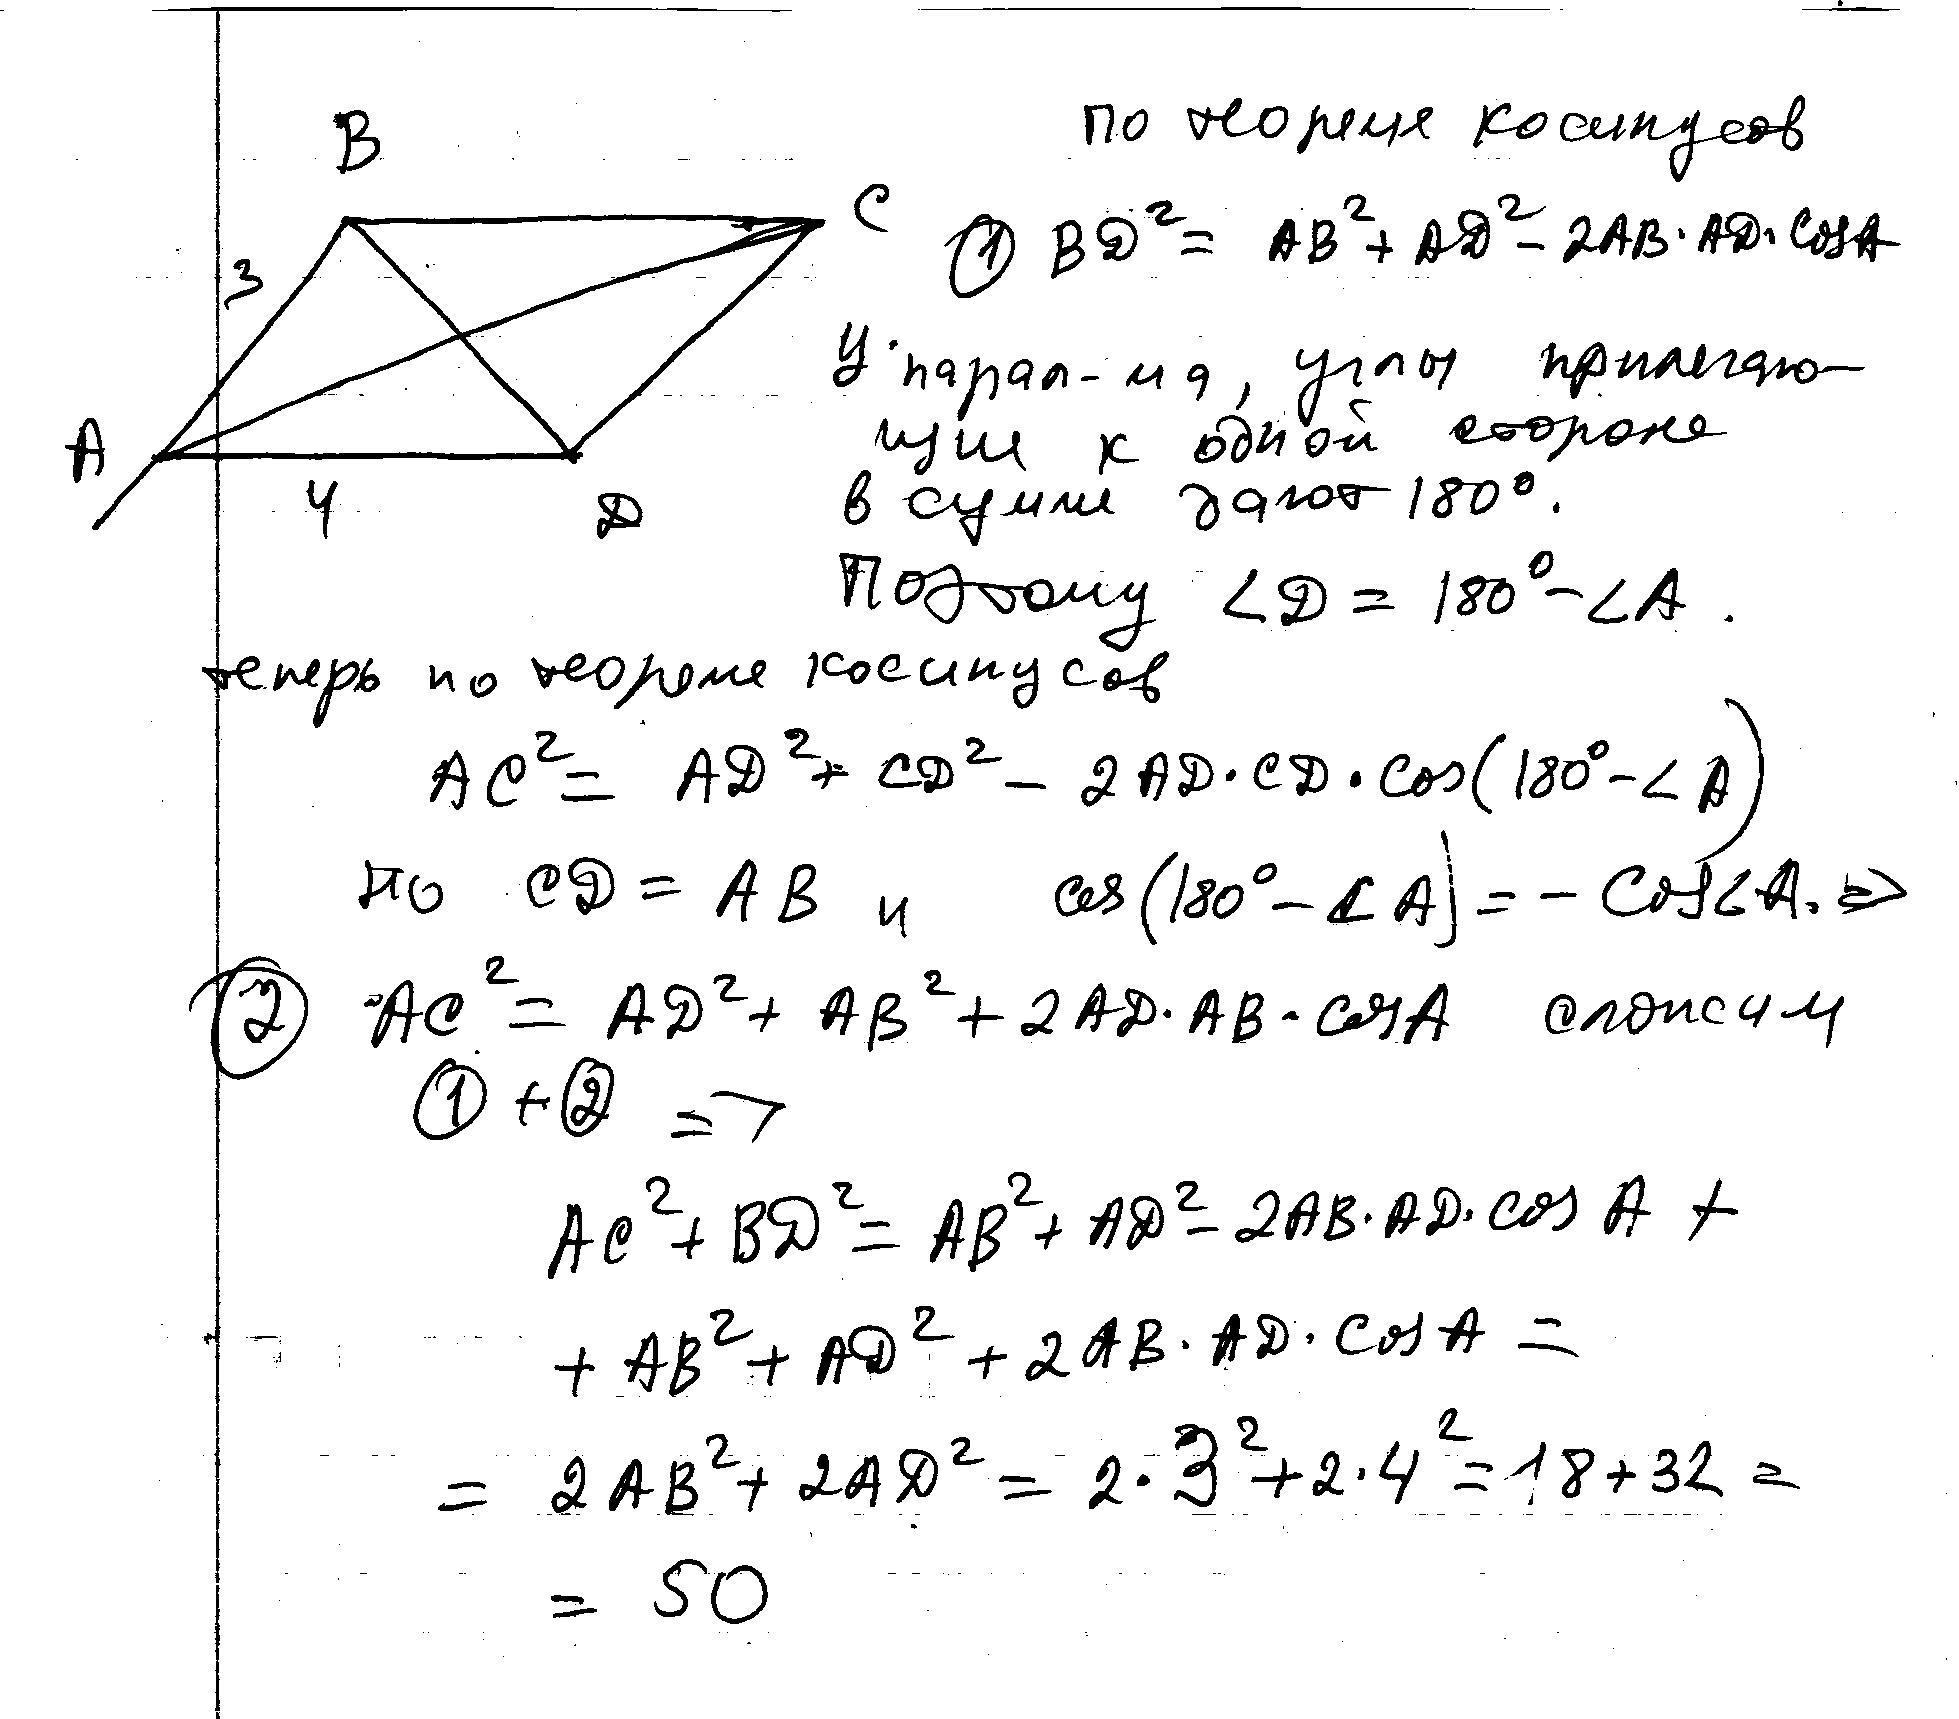 B
C
3
A
4
D
по теореме косинусов
① BD² = AB² + AD² - 2AB·AD·cosA
У парал-ма, углы прилегаю-
щие к одной стороне
в сумме дают 180°.
Поэтому ∠D = 180° - ∠A.
теперь по теореме косинусов
AC² = AD² + CD² - 2AD·CD·cos(180° - ∠A)
но CD = AB и cos(180° - ∠A) = - cos∠A. =>
② AC² = AD² + AB² + 2AD·AB·cosA сложим
① + ② =>
AC² + BD² = AB² + AD² - 2AB·AD·cos A +
+ AB² + AD² + 2AB·AD·cosA =
= 2AB² + 2AD² = 2·3² + 2·4² = 18 + 32 =
= 50